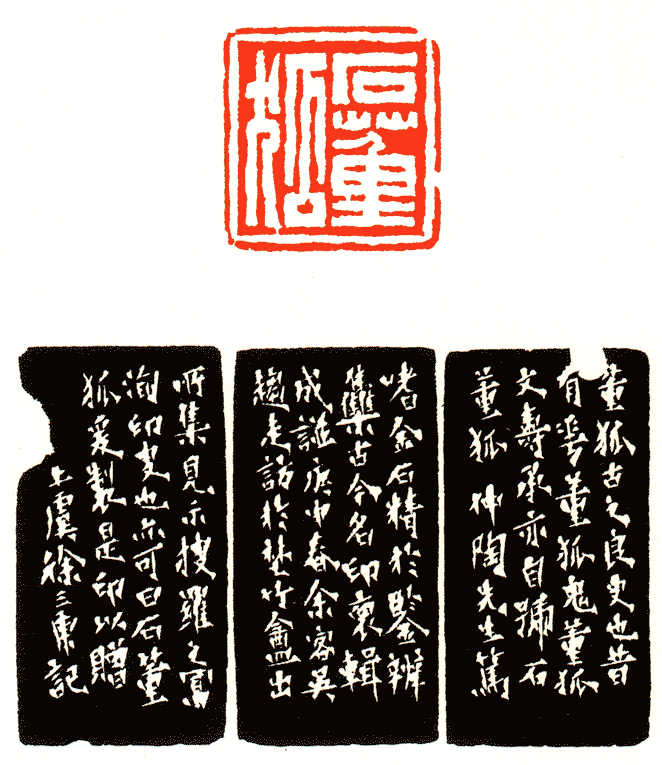 石董
狐
董狐古之良史也昔
有董狐鬼董狐
文壽承亦自號石
董狐仲陶先生篤
嗜金石精於鑒辨
雧古今名印裒輯
成譜庚申春余客吳
趨走訪於埜竹盦出
所集見示搜羅之富
洵印史也亦可曰石董
狐爰製是印以贈
上虞徐三庚記